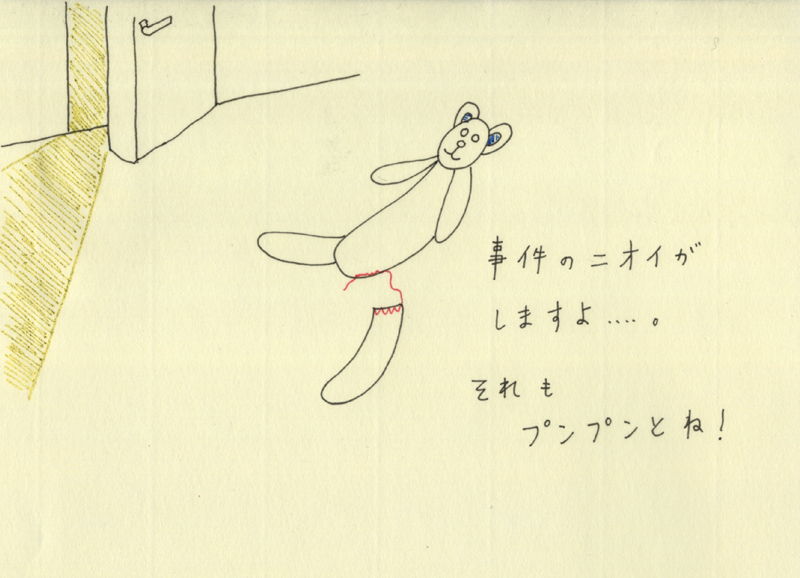 事件のニオイが
しますよ‥‥。
それも
プンプンとね!